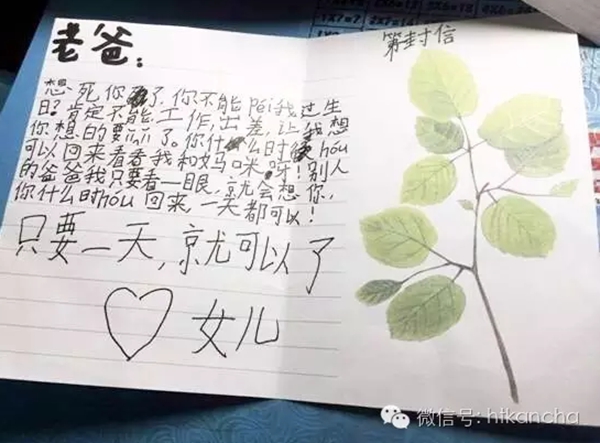 老爸：
想死你了.你不能péi我过生
日?肯定不能,工作,出差,让我想
你想的要了。你什么时hóu
可以回来看看我和妈咪呀!别人
的爸爸我只要看一眼,就会想你,
你什么时hóu回来,一天都可以!
只要一天,就可以了
女儿
第封信
1X7=7 2X7=14
微信号: hfkancha